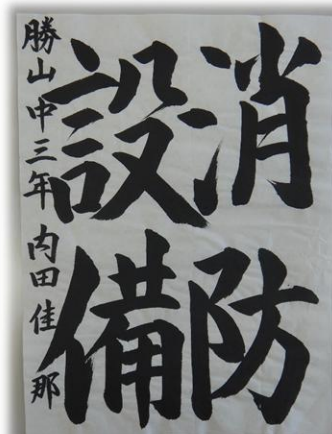 消防
設備
勝山中三年 内田佳那